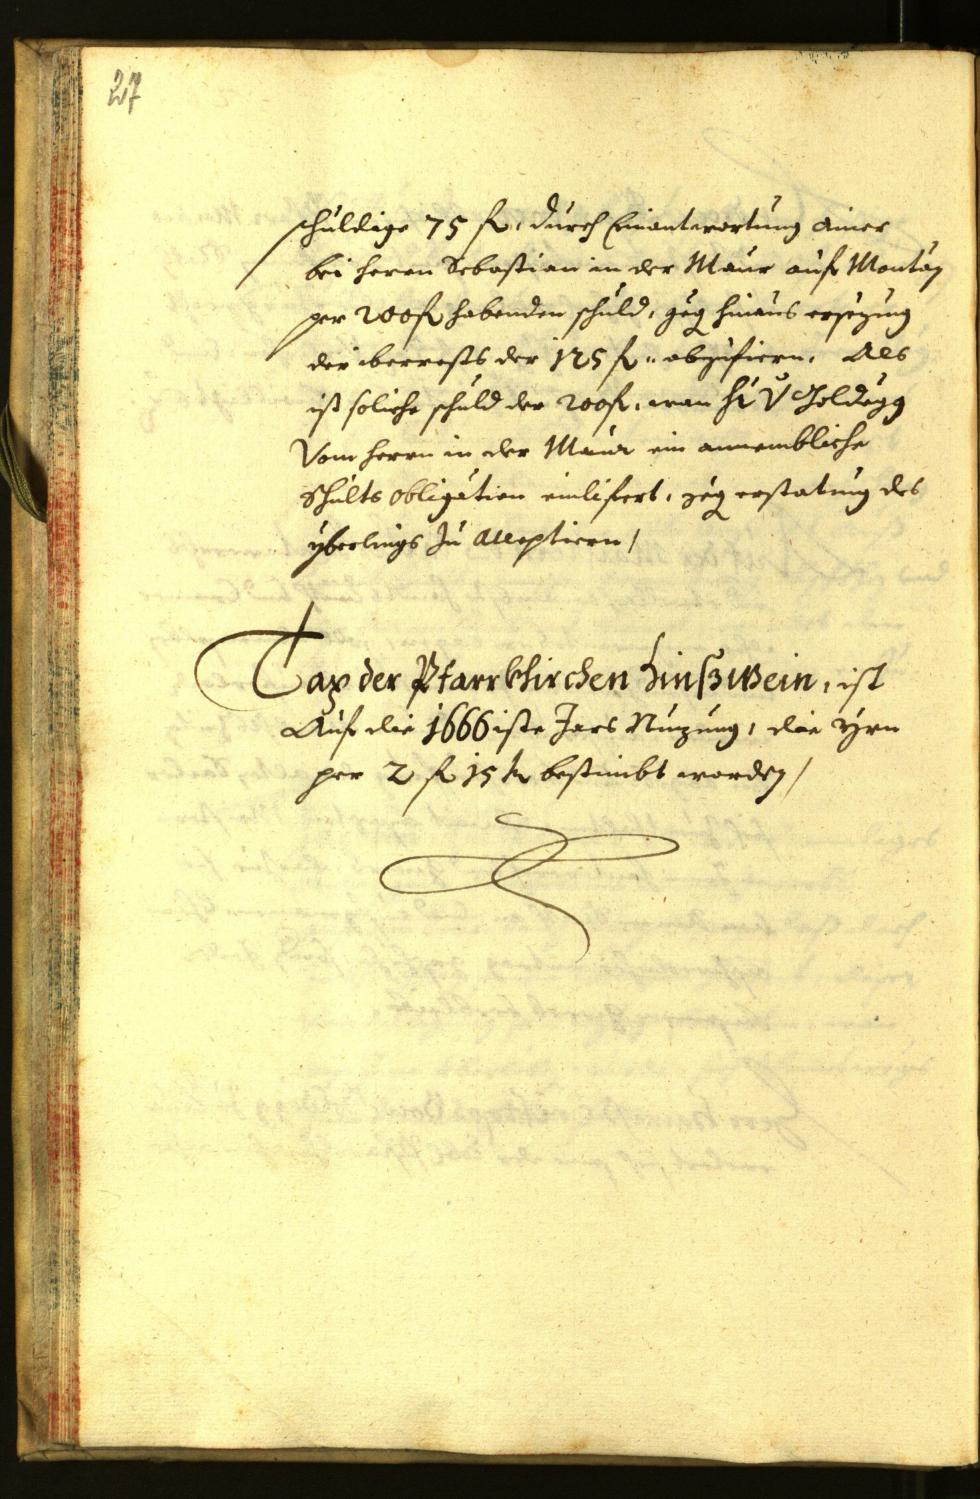 27
schuldige 75 f, durch Einantwortung ainer
bei herrn Sebastian in der Maur auf Montag
per 200 f habenden schuld, geg hinaus ersezung
der iberrests der 125 f: abzufiern. Als
ist soliche schuld der 200 f, wan Hr V Goldegg
Vom herrn in der Maur ein annembliche
Schults obligation einlifert, geg erstatung des
yberlings zu Acceptiern /
Tax der Pfarrkhirchen Zinßwein, ist
Auf die 1666iste Jars Nuzung, die Yrn
per 2 f 15 kr bestimbt worden /